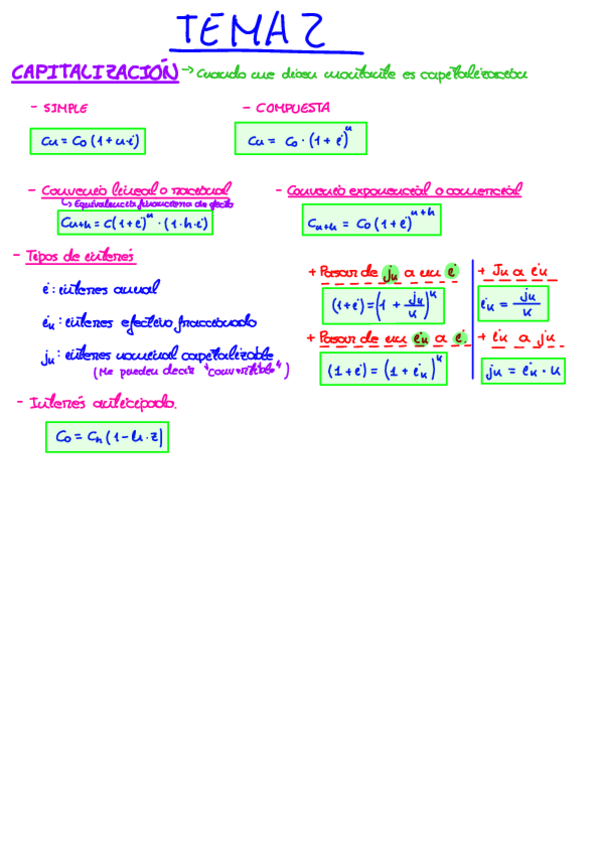 TEMA 2
CAPITALIZACIÓN → Cuando me dicen montante es capitalización
- SIMPLE
Cn = C0 (1+n·i)
- COMPUESTA
Cn = C0 · (1+i)^n
- Convenio lineal o racional
↳ Equivalencia financiera de efecto
Cn+h = C(1+i)^n · (1·h·i)
- Convenio exponencial o comercial
Cn+h = C0 (1+i)^n+h
- Tipos de interés
i : interes anual
ik : interes efectivo fraccionado
jk : interes nominal capitalizable
(Me pueden decir "convertible")
+ Pasar de jk a un i
(1+i) = (1 + jk/k)^k
+ Jk a ik
ik = jk/k
+ Pasar de un ik a i.
(1+i) = (1+ik)^k
+ ik a jk.
jk = ik · k
- Interés anticipado.
C0 = Ch (1-h·z]